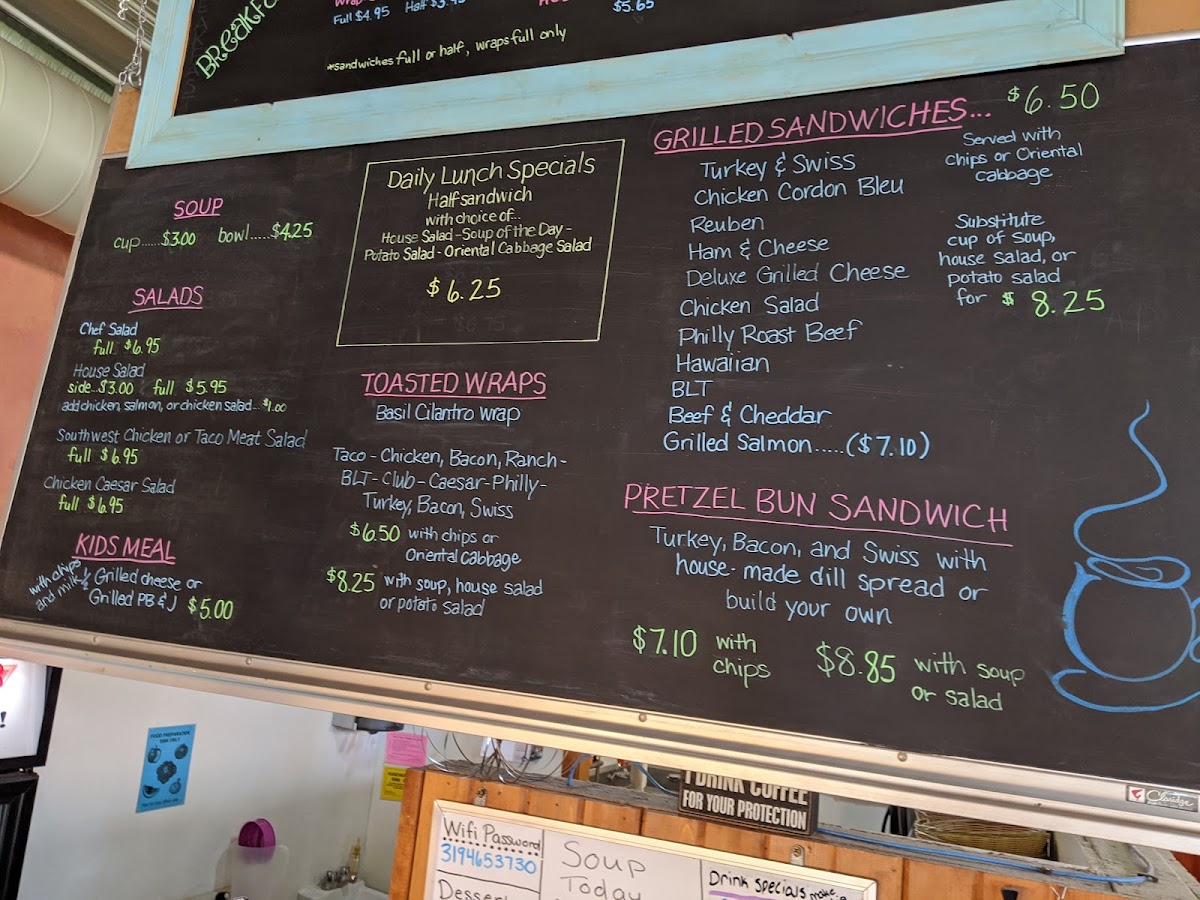 BREAKF
Full $4.95 Half $3.95
$5.65
*sandwiches full or half, wraps full only
SOUP
cup......$3.00 bowl.....$4.25
SALADS
Chef Salad
full $6.95
House Salad
side...$3.00 full $5.95
add chicken, salmon, or chicken salad...$1.00
Southwest Chicken or Taco Meat Salad
full $6.95
Chicken Caesar Salad
full $6.95
KIDS MEAL
with chips and milk
½ Grilled cheese or
Grilled PB & J $5.00
Daily Lunch Specials
Half sandwich
with choice of...
House Salad - Soup of the Day -
Potato Salad - Oriental Cabbage Salad
$6.25
TOASTED WRAPS
Basil Cilantro wrap
Taco - Chicken, Bacon, Ranch -
BLT - Club - Caesar - Philly -
Turkey, Bacon, Swiss
$6.50 with chips or
Oriental cabbage
$8.25 with soup, house salad
or potato salad
GRILLED SANDWICHES... $6.50
Served with
chips or Oriental
cabbage
Turkey & Swiss
Chicken Cordon Bleu
Reuben
Ham & Cheese
Deluxe Grilled Cheese
Chicken Salad
Philly Roast Beef
Hawaiian
BLT
Beef & Cheddar
Grilled Salmon.....($7.10)
Substitute
cup of soup,
house salad, or
potato salad
for $8.25
PRETZEL BUN SANDWICH
Turkey, Bacon, and Swiss with
house-made dill spread or
build your own
$7.10 with
chips
$8.85 with soup
or salad
Claridge
FOOD PREPARATION
SINK ONLY
I DRINK COFFEE
FOR YOUR PROTECTION
Wifi Password
3194653730
Dessert
Soup
Today
Drink specials